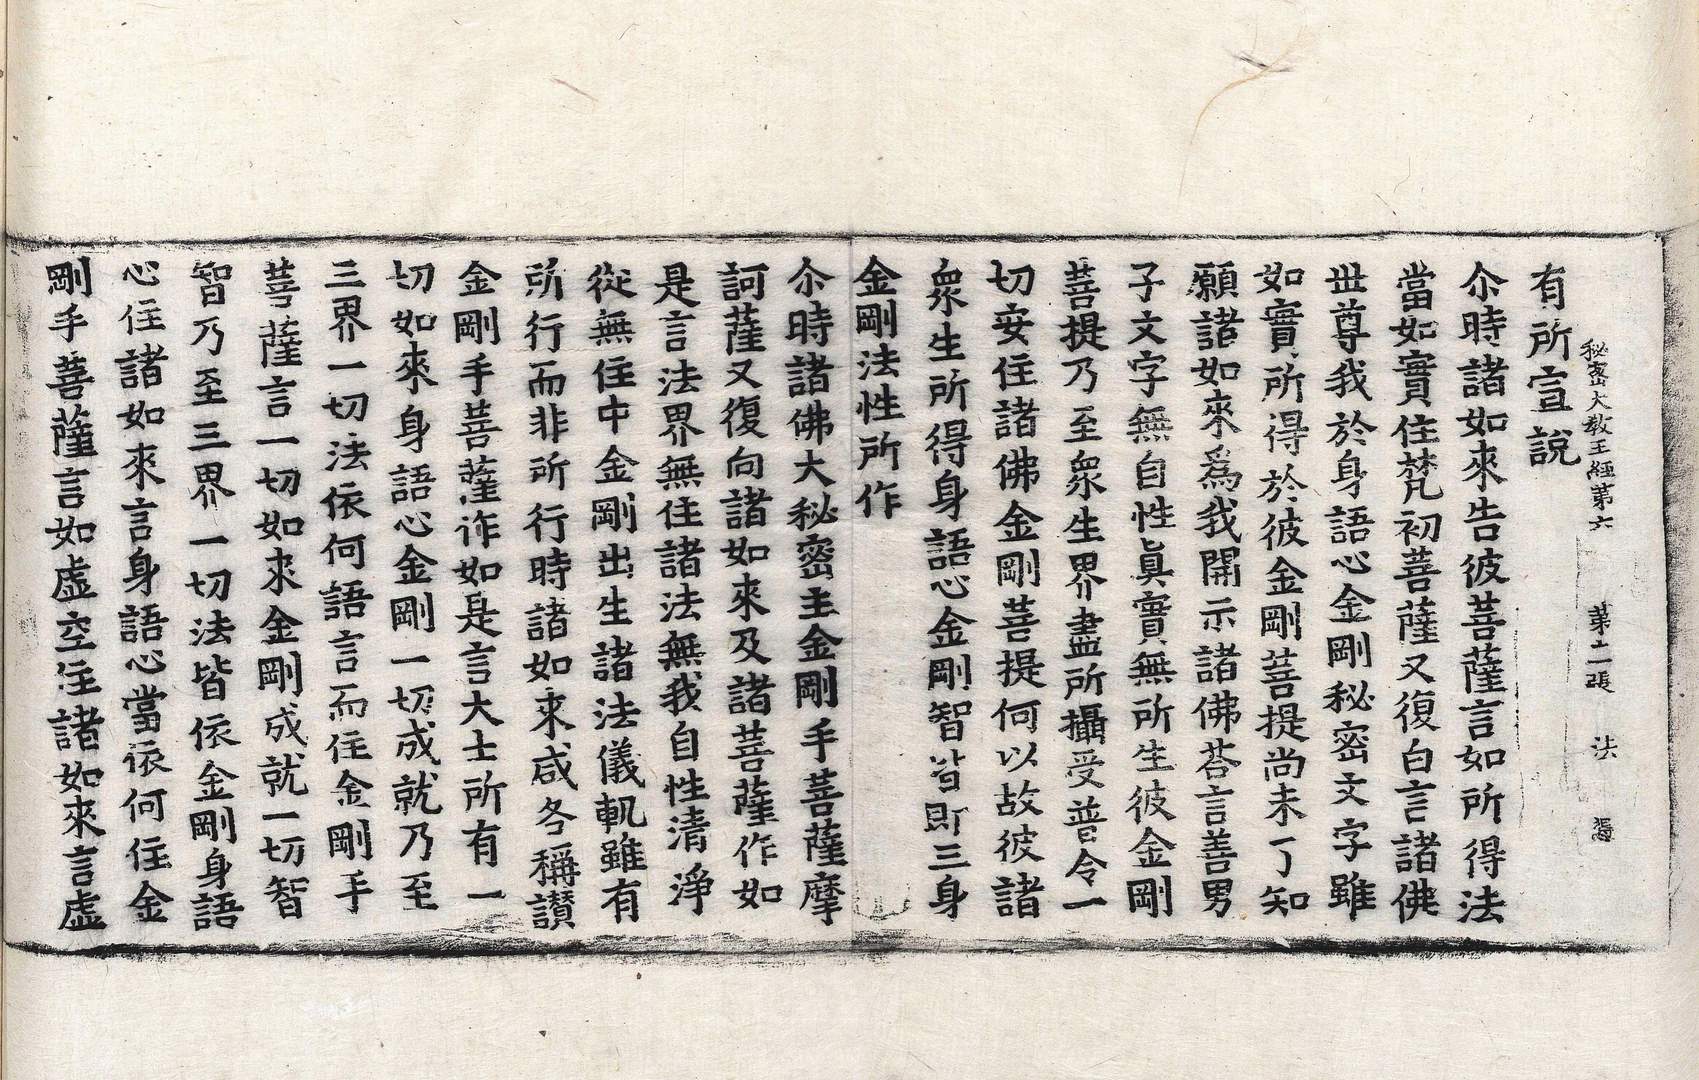 秘密大教王經第六　第十二張　法
有所宣說
尒時諸如來告彼菩薩言如所得法
當如實住梵初菩薩又復白言諸佛
世尊我於身語心金剛秘密文字雖
如實所得於彼金剛菩提尚未了知
願諸如來爲我開示諸佛荅言善男
子文字無自性眞實無所生彼金剛
菩提乃至衆生界盡所攝受普令一
切安住諸佛金剛菩提何以故彼諸
衆生所得身語心金剛智皆即三身
金剛法性所作
尒時諸佛大秘密主金剛手菩薩摩
訶薩又復向諸如來及諸菩薩作如
是言法界無住諸法無我自性清淨
從無住中金剛出生諸法儀軌雖有
所行而非所行行時諸如來咸各稱讃
金剛手菩薩作如是言大士所有一
切如來身語心金剛一切成就乃至
三界一切法依何語言而住金剛手
菩薩言一切如來金剛成就一切智
智乃至三界一切法皆依金剛身語
心住諸如來言身語心當依何住金
剛手菩薩言如虛空住諸如來言虛